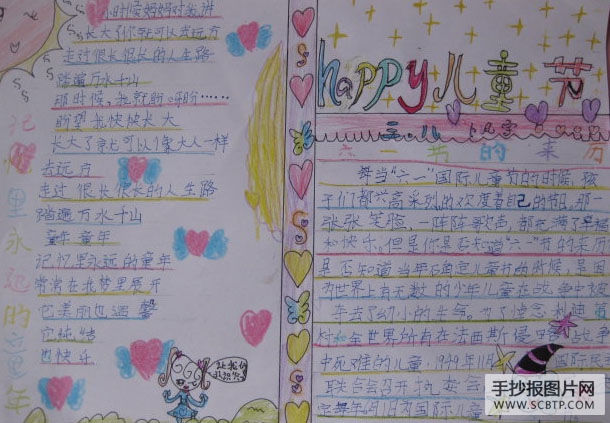 小时候妈妈对我讲
长大了你就可以去远方
走过很长很长的人生路
踏遍万水千山
那时候，我就盼呀盼……
盼望我快快长大
长大了就可以像大人一样
去远方
走过很长很长的人生路
踏遍万水千山
童年 童年
记忆里永远的童年
常常在我梦里展开
它美丽也温馨
它纯纯
也快乐
记忆里永远的童年
happy儿童节
六一节的来历
每当“六一”国际儿童节的时候，孩
子们都兴高采烈的欢度着自己的节，那一
张张笑脸，一阵阵歌声，都充满了幸福
和快乐，但是你是否知道“六一”节的来历
是否知道当年确定儿童节的时候，是因
为世界上有无数的少年儿童在战争中被
夺去了幼小的生命。为了悼念
和全世界所有在法西斯侵略战争
中死难的儿童，1949年11月 国际民
联合会召开执委会
定每年6月1日为国际儿童
手抄报图片网
WWW.SCBTP.COM